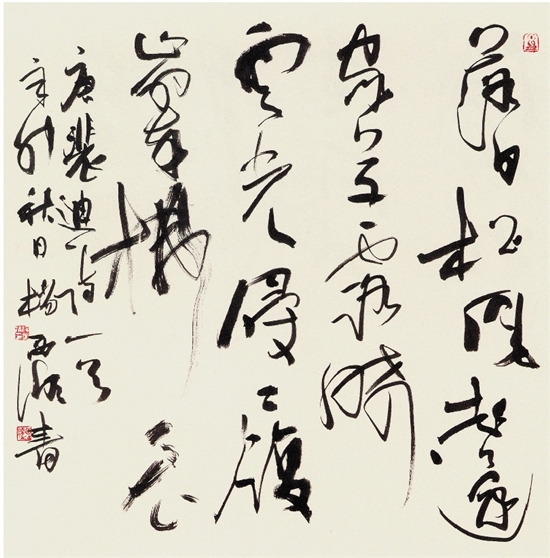 落日松風起還
家草露晞
雲光侵履
山翠拂人衣
唐裴迪詩一首
辛卯秋日楊西湖書